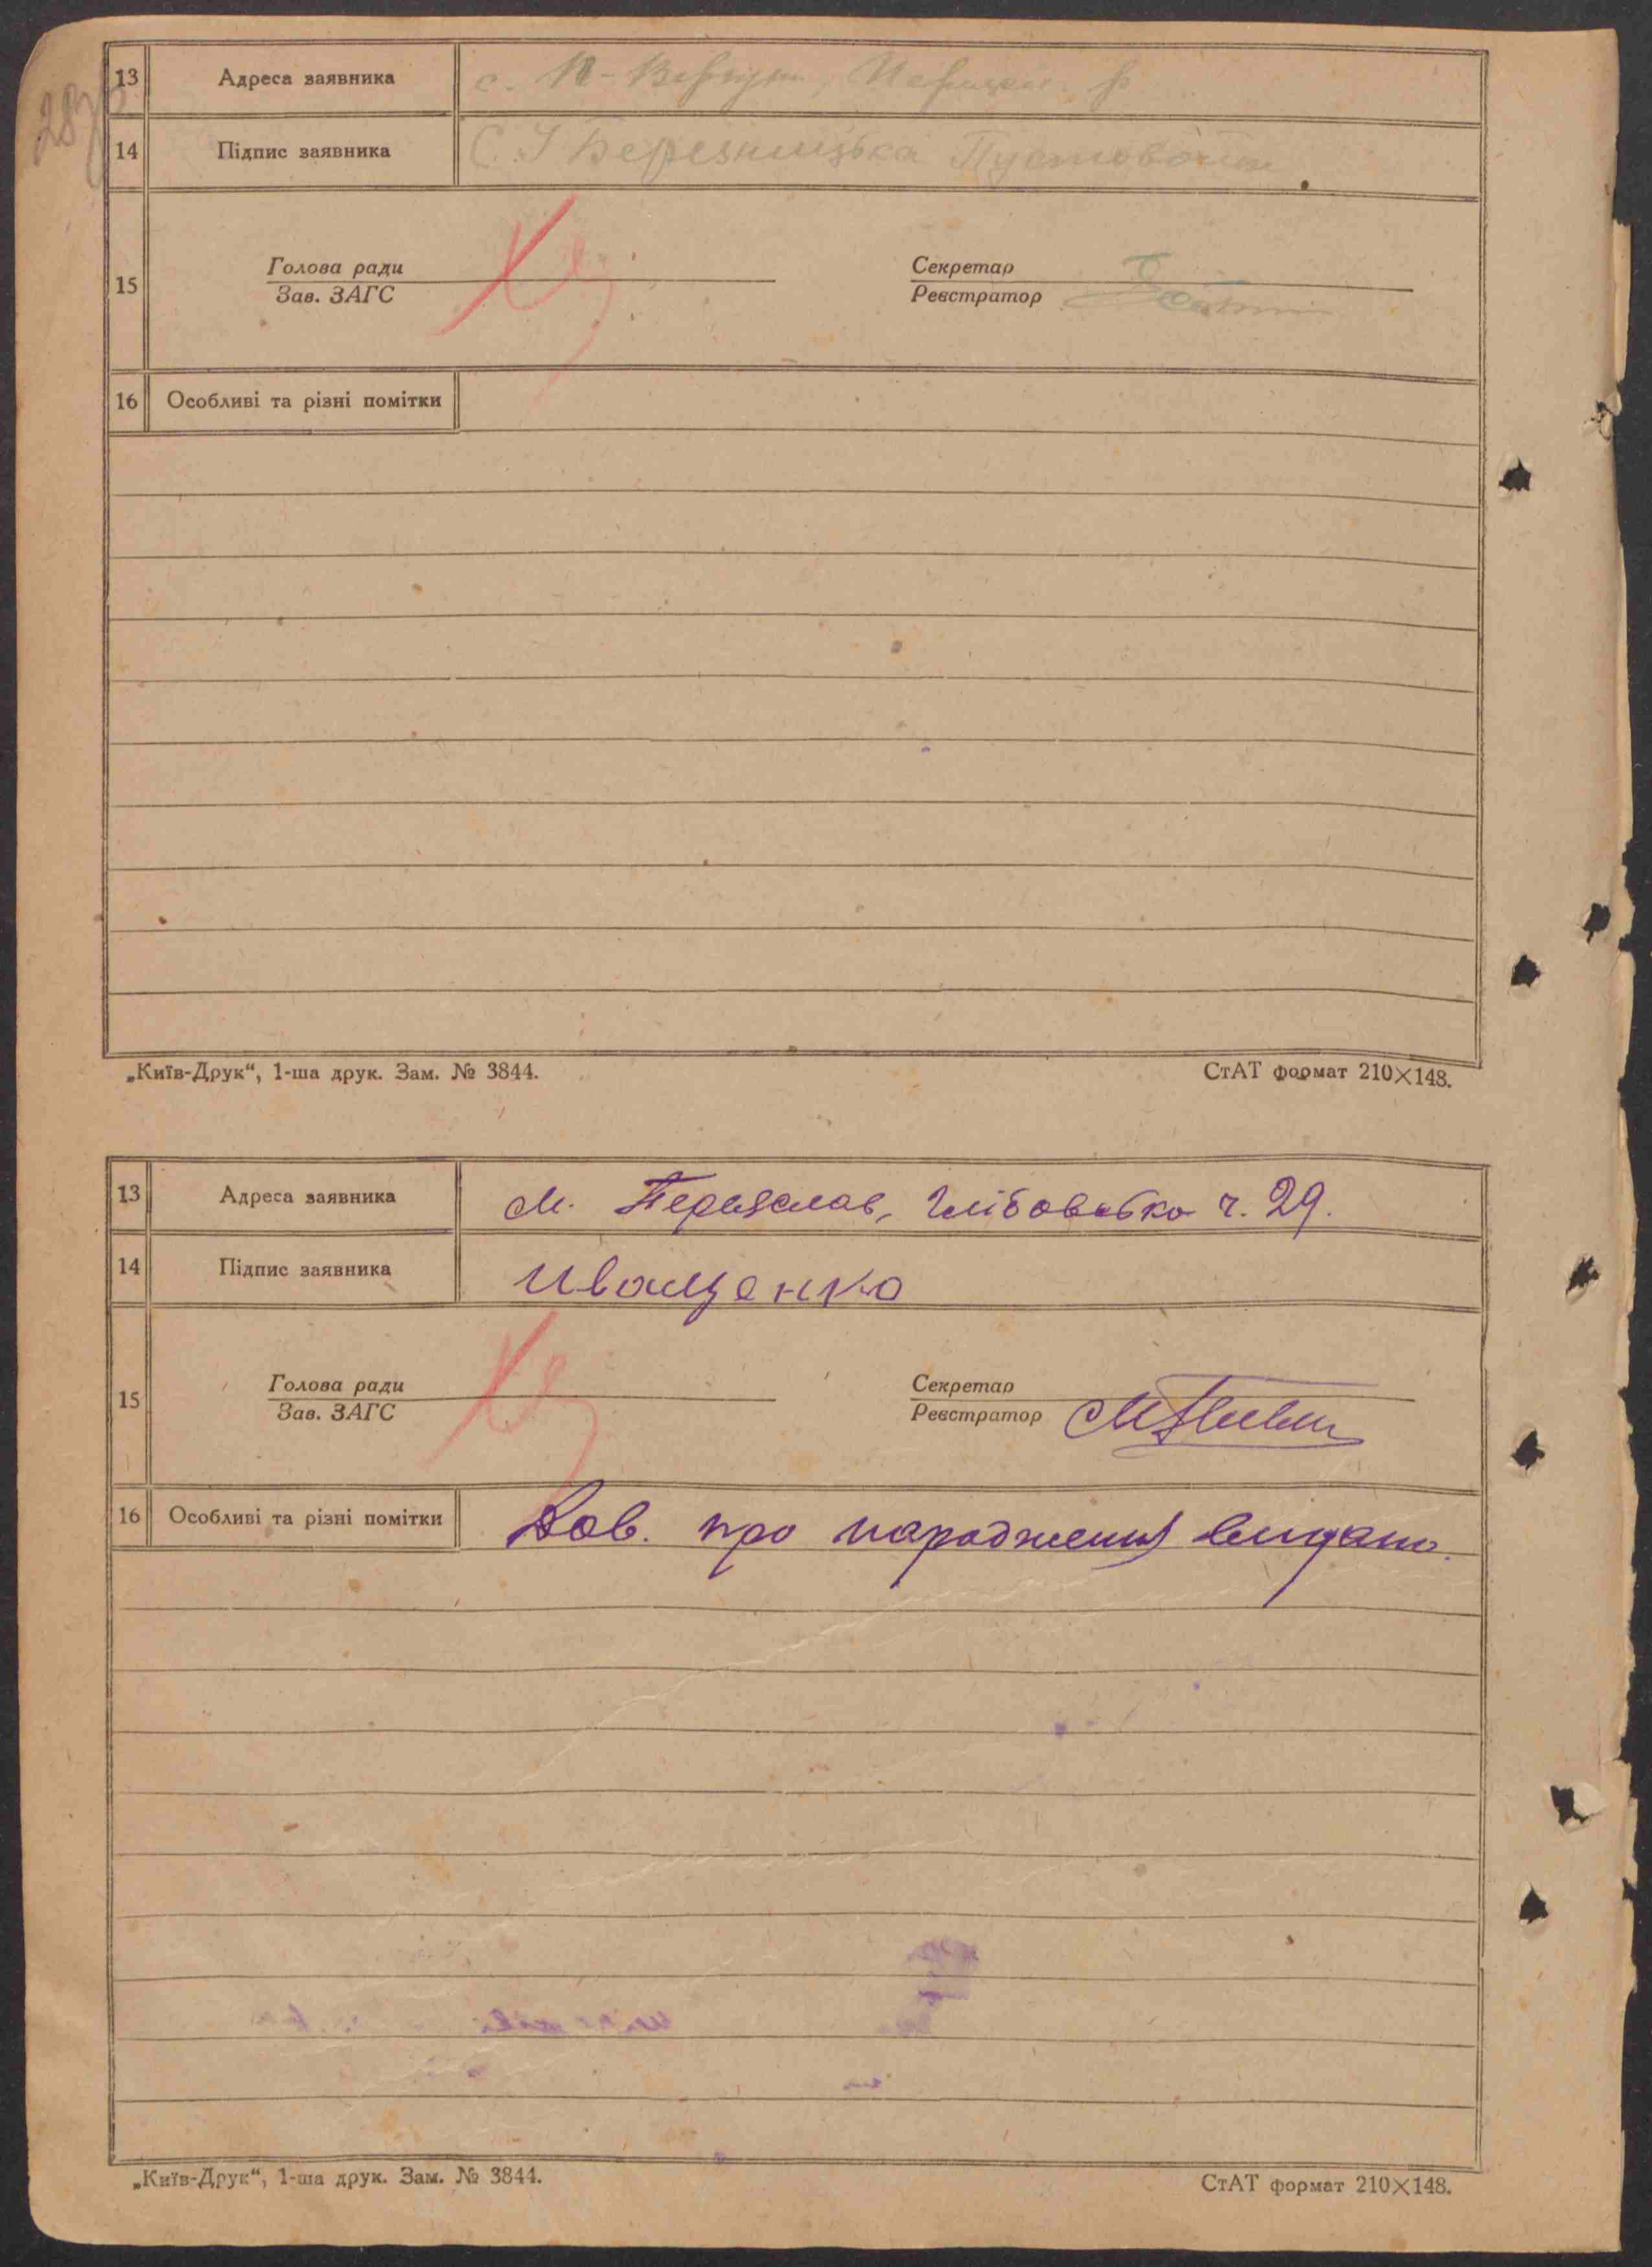 13 Адреса заявника с.
14 Підпис заявника С. І Березницька
15 Голова ради Секретар
Зав. ЗАГС Реєстратор
16 Особливі та різні помітки
„Київ-Друк“, 1-ша друк. Зам. № 3844. СтАТ формат 210×148.
13 Адреса заявника м. Переяслав, ч. 29.
14 Підпис заявника Иващенко
15 Голова ради Секретар
Зав. ЗАГС Реєстратор
16 Особливі та різні помітки Дов. про народження видано.
„Київ-Друк“, 1-ша друк. Зам. № 3844. СтАТ формат 210×148.